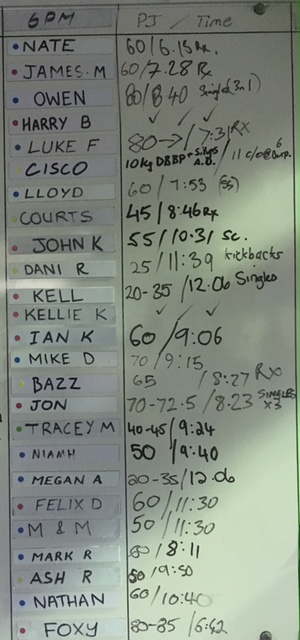 6PM PJ / Time
NATE 60/6.15 Rx.
JAMES.M 60/7.28 Rx
OWEN 80/8 40 Singles(3n1)
HARRY B ✓ ✓ ✓
LUKE F 80 → / 7:31 RX
CISCO 10kg DBBP + A.D. / 11
LLOYD 60 / 7:53 (SS)
COURTS 45/8:46 Rx
JOHN K 55/10.31 SC.
DANI R 25/11:39 kickbacks
KELL 20-35 /12.06 Singles
KELLIE K ✓ ✓
IAN K 60 /9:06
MIKE D 70/9:15
BAZZ 65 /8:27 RX
JON 70-72.5 /8.23 SINGLES x3
TRACEY M 40-45/9:24
NIAMH 50 /9:40
MEGAN A 20-35/12.06
FELIX D 60/11:30
M & M 50 /11:30
MARK R 80/8:11
ASH R 50/9:50
NATHAN 60/10:40
FOXY 80-85 /6:42